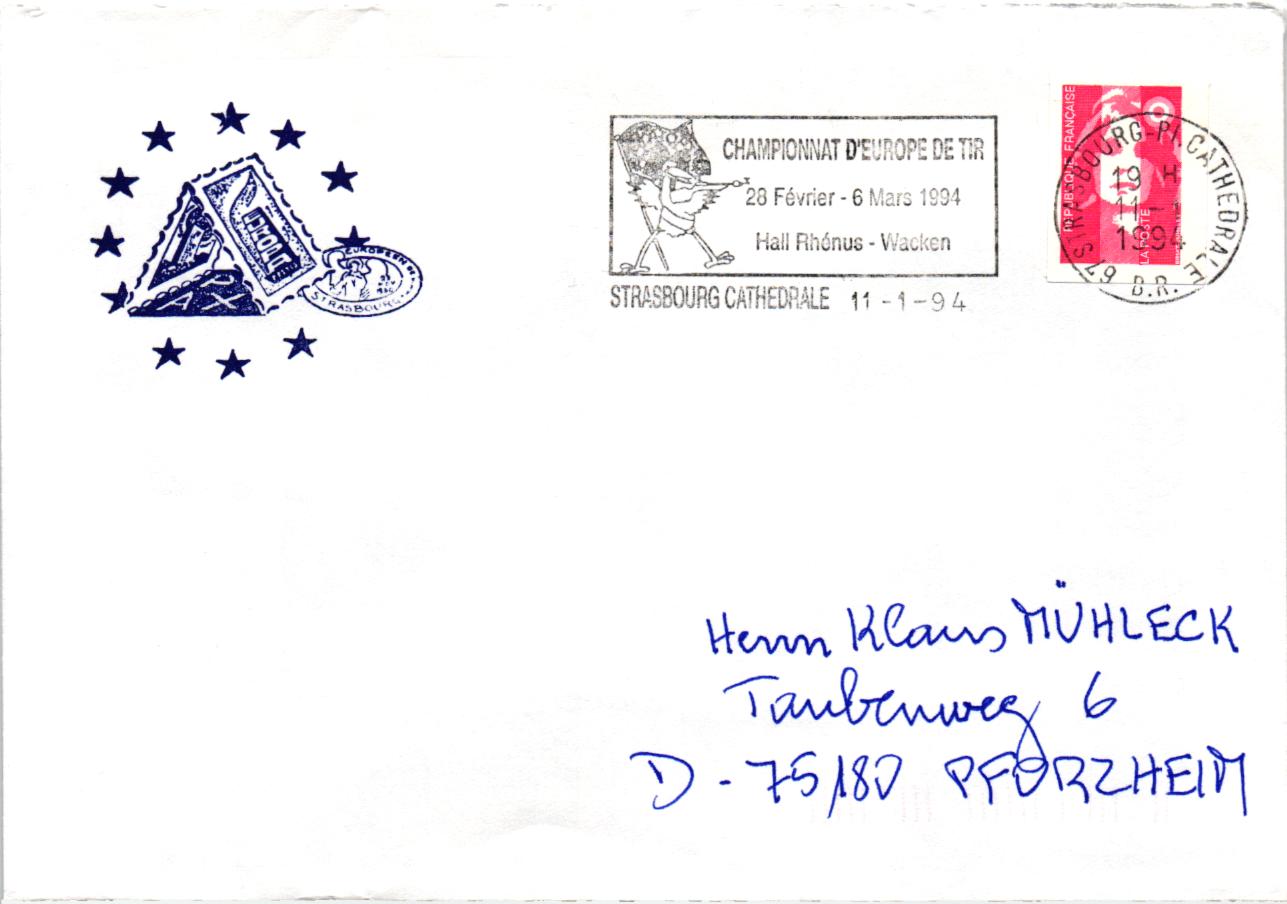 CHAMPIONNAT D'EUROPE DE TIR
28 Février - 6 Mars 1994
Hall Rhénus - Wacken
STRASBOURG CATHEDRALE 11 - 1 - 94
RÉPUBLIQUE FRANÇAISE
LA POSTE
STRASBOURG-PL. CATHEDRALE
19 H
11 - 1
1994
67 B.R.
EUROPEEN
STRASBOURG
Herrn Klaus MÜHLECK
Taubenweg 6
D - 75180 PFORZHEIM